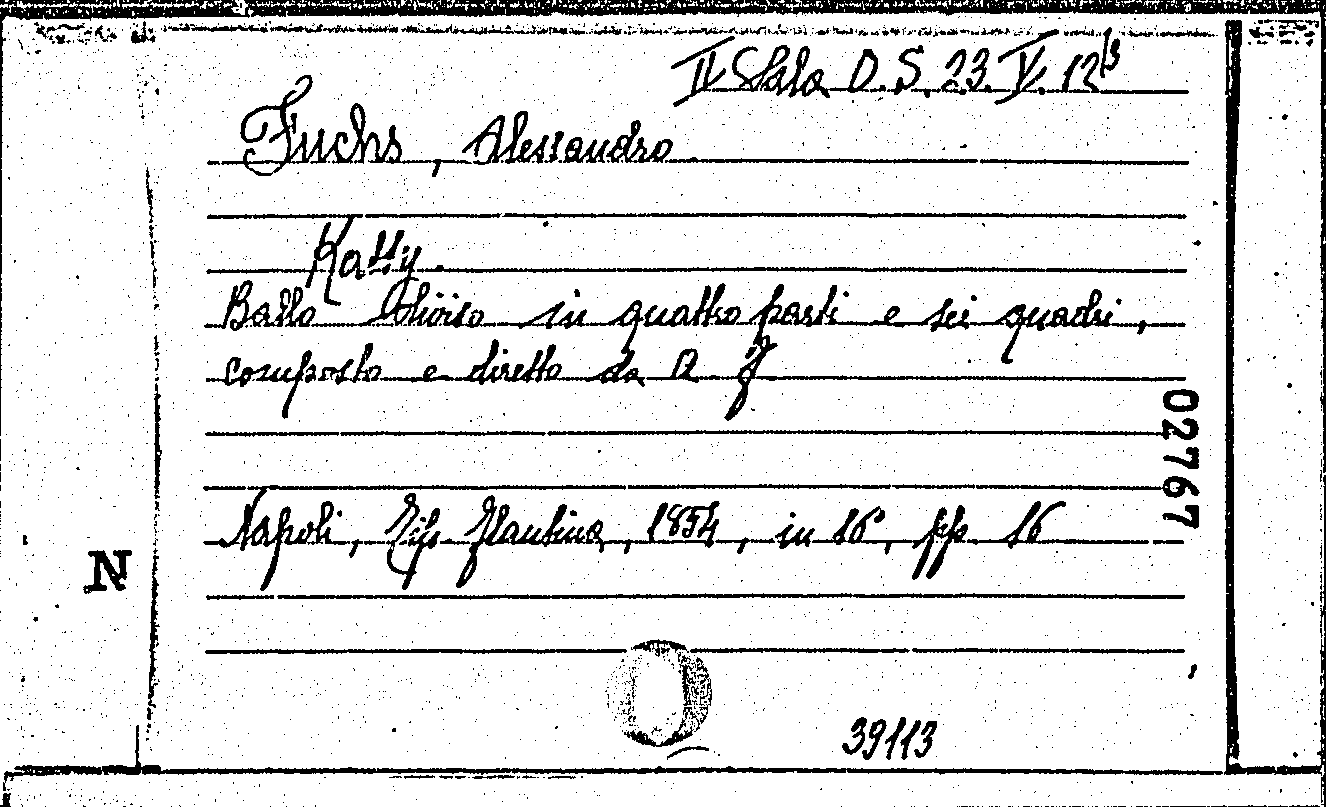 II Sala D. S. 23. V. 12
Fuchs, Alessandro
Katty.
Ballo in quattro parti e sei quadri,
composto e diretto da
02767
Napoli, Tip. Flautina, 1854, in 16°, pp. 16
N
39113